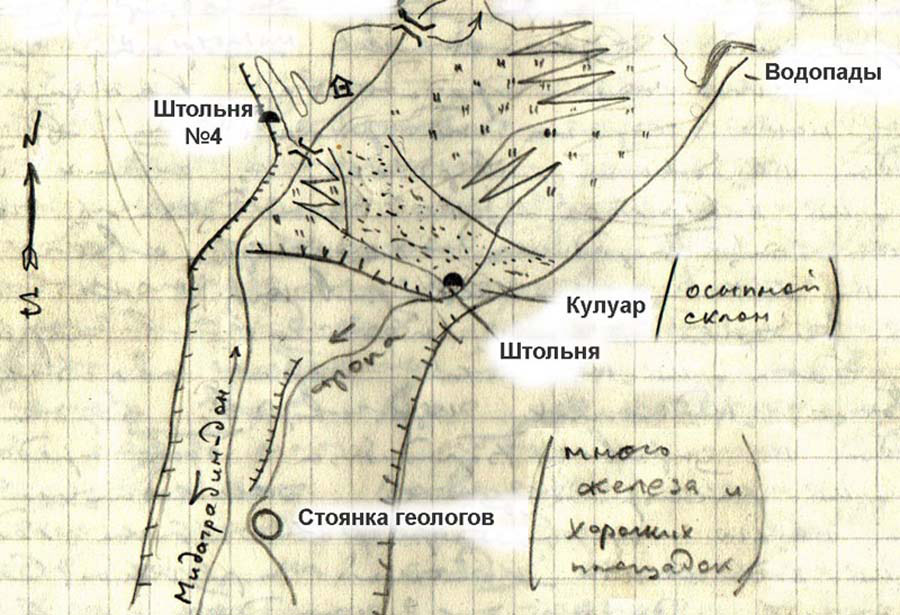 Водопады
Штольня
№4
N
S
Кулуар
(осыпной
склон)
Штольня
тропа
Мидаграбин-дон
Стоянка геологов
(много
железа и
хороших
площадок)